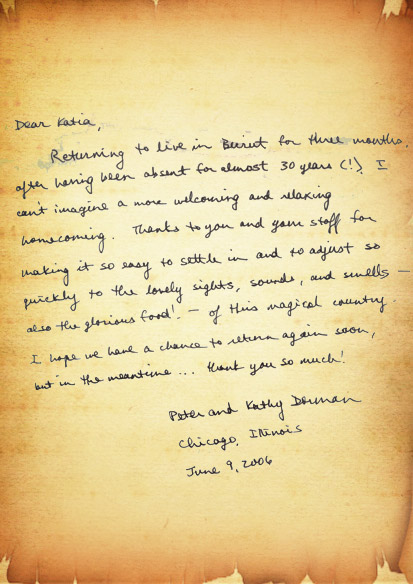 Dear Katia,
Returning to live in Beirut for three months,
after having been absent for almost 30 years (!), I
can't imagine a more welcoming and relaxing
homecoming. Thanks to you and your staff for
making it so easy to settle in and to adjust so
quickly to the lovely sights, sounds, and smells —
also the glorious food! — of this magical country.
I hope we have a chance to return again soon,
but in the meantime ... thank you so much!
Peter and Kathy Dorman
Chicago, Illinois
June 9, 2006